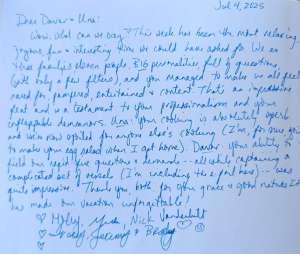 Jul 4, 2025
Dear Davor + Una!
Wow, what can we say? This week has been the most relaxing,
joyous fun & interesting time we could have asked for. We are
three families, eleven people, 316 personalities, full of questions,
(with only a few filters), and you managed to make us all feel
cared for, pampered, entertained & content. That's an impressive
feat and is a testament to your professionalism and your
unflappable demeanors. Una: your cooking is absolutely superb
and we're now spoiled for anyone else's cooking
to make your egg salad when I get home). Davor: your ability to
field our rapid fire questions & demands -- all while captaining a
complicated set of vessel (I'm including the port here) -- was
quite impressive. Thank you, both, for your grace & good natures. It
has made our vacation unforgettable!
Nick Vanderbilt
Jeremy & Brady